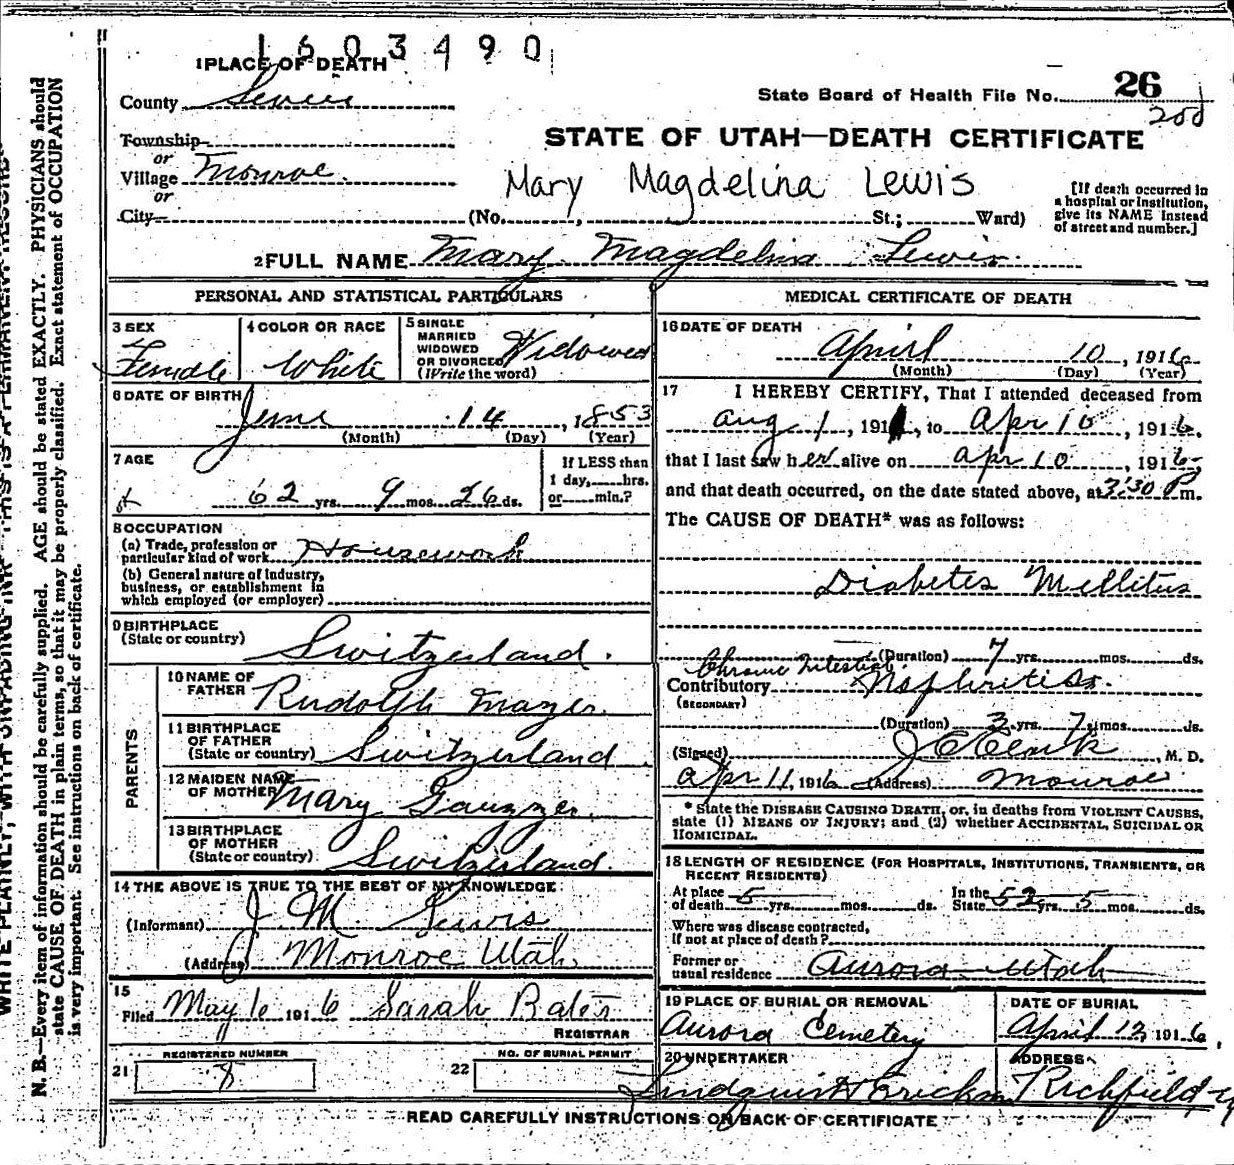 1603490
1 PLACE OF DEATH
County Sevier
State Board of Health File No. 26
200
Township
STATE OF UTAH—DEATH CERTIFICATE
or
Village Monroe.
Mary Magdelina Lewis
or
City (No. , St.; Ward)
[If death occurred in
a hospital or institution,
give its NAME instead
of street and number.]
2 FULL NAME Mary Magdelina Lewis.
PERSONAL AND STATISTICAL PARTICULARS
3 SEX
Female
4 COLOR OR RACE
White
5 SINGLE
MARRIED
WIDOWED
OR DIVORCED
(Write the word)
Widowed
6 DATE OF BIRTH
June 14, 1853
(Month) (Day) (Year)
7 AGE
62 yrs. 9 mos. 26 ds.
If LESS than
1 day, hrs.
or min.?
8 OCCUPATION
(a) Trade, profession or
particular kind of work Housework
(b) General nature of industry,
business, or establishment in
which employed (or employer)
9 BIRTHPLACE
(State or country) Switzerland.
PARENTS
10 NAME OF
FATHER Rudolph Mazer.
11 BIRTHPLACE
OF FATHER
(State or country) Switzerland.
12 MAIDEN NAME
OF MOTHER Mary
13 BIRTHPLACE
OF MOTHER
(State or country) Switzerland.
14 THE ABOVE IS TRUE TO THE BEST OF MY KNOWLEDGE:
(Informant) J. M. Lewis
(Address) Monroe Utah.
15
Filed May 6 1916 Sarah Bates
REGISTRAR
REGISTERED NUMBER
21 8
NO. OF BURIAL PERMIT
22
MEDICAL CERTIFICATE OF DEATH
16 DATE OF DEATH
April 10, 1916
(Month) (Day) (Year)
17 I HEREBY CERTIFY, That I attended deceased from
Aug 1, 1911, to Apr 10, 1916,
that I last saw her alive on Apr 10, 1916,
and that death occurred, on the date stated above, at 3:30 P m.
The CAUSE OF DEATH* was as follows:
Diabetes Mellitus
(Duration) 7 yrs. mos. ds.
Chronic Intestial
Contributory Nephritis.
(SECONDARY)
(Duration) 3 yrs. 7 mos. ds.
(Signed) J C Clark, M. D.
Apr 11, 1916 (Address) Monroe
*State the DISEASE CAUSING DEATH, or, in deaths from VIOLENT CAUSES,
state (1) MEANS OF INJURY; and (2) whether ACCIDENTAL, SUICIDAL OR
HOMICIDAL.
18 LENGTH OF RESIDENCE (FOR HOSPITALS, INSTITUTIONS, TRANSIENTS, OR
RECENT RESIDENTS)
At place
of death 5 yrs. mos. ds.
In the
State 52 yrs. 5 mos. ds.
Where was disease contracted,
if not at place of death?
Former or
usual residence Aurora Utah
19 PLACE OF BURIAL OR REMOVAL
Aurora Cemetery
DATE OF BURIAL
April 12, 1916,
20 UNDERTAKER
Lindquist & Erickson
ADDRESS
Richfield, U
READ CAREFULLY INSTRUCTIONS ON BACK OF CERTIFICATE
N. B.—Every item of information should be carefully supplied. AGE should be stated EXACTLY. PHYSICIANS should
state CAUSE OF DEATH in plain terms, so that it may be properly classified. Exact statement of OCCUPATION
is very important. See instructions on back of certificate.